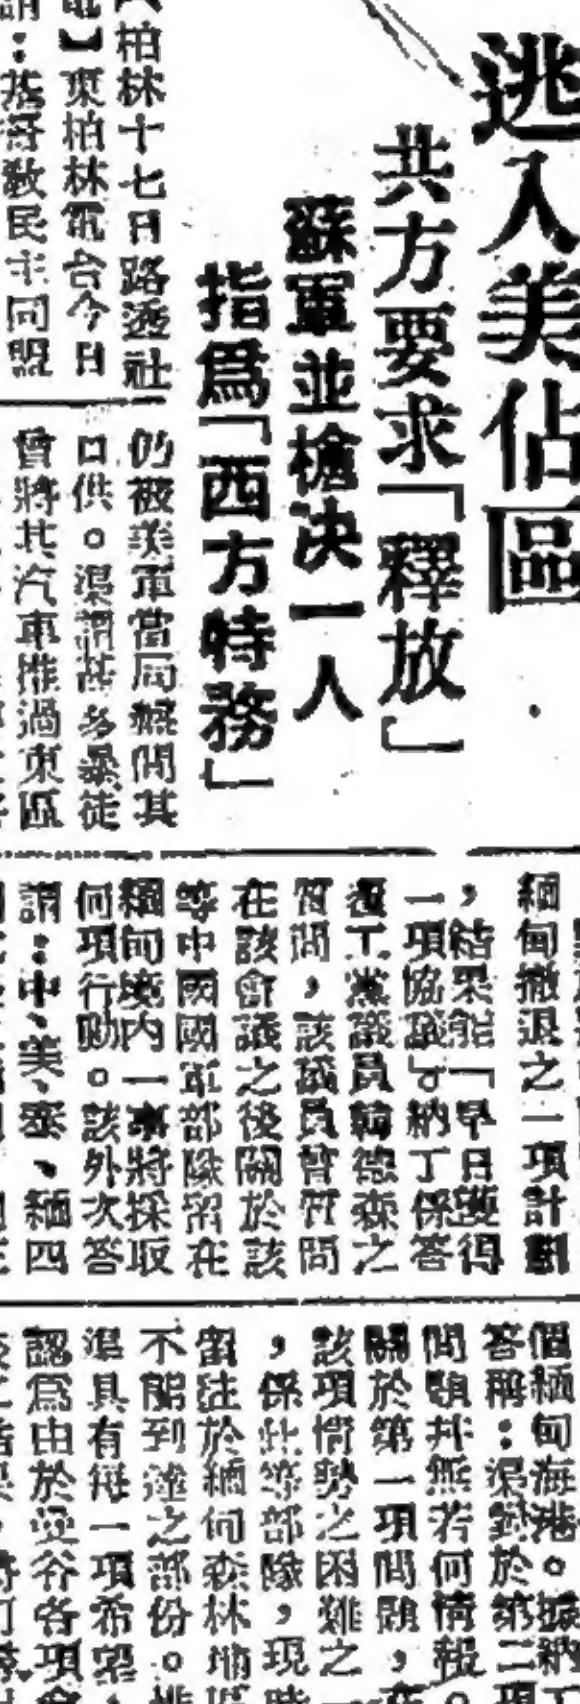 逃入美佔區
共方要求「釋放」
蘇軍並槍決一人
指爲「西方特務」
柏林十七日路透社
電】東柏林電台今日
民主同盟
仍被美軍當局訊問其
口供。渠謂甚多暴徒
曾將其汽車推過東區
緬甸撤退之一項計劃
，結果能「早日獲得
一項協議」。納丁係答
復工黨議員韓德森之
質問，該議員曾質問
在該會議之後關於該
等中國國軍部隊留在
緬甸境內一事將採取
何項行動。該外次答
謂：中、美、泰、緬四
個緬甸海港。據納丁
答稱：渠對於第二項
問題并無若何情報。
關於第一項問題，在
該項情勢之困難之一
，係此等部隊，現時
留住於緬甸森林地區
不能到達之部份。
渠具有每一項希望，
認爲由於曼谷各項會